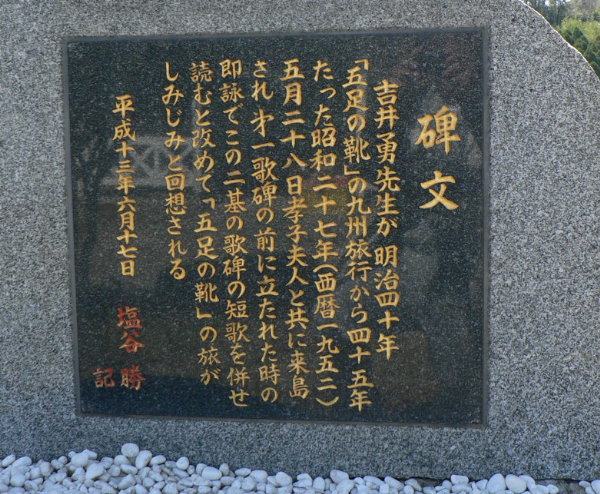 碑文
吉井勇先生が 明治四十年
「五足の靴」の九州旅行から四十五年
たった昭和二十七年(西暦一九五二)
五月二十八日孝子夫人と共に来島
され 才一歌碑の前に立たれた時の
即詠でこの二基の歌碑の短歌を併せ
読むと改めて「五足の靴」の旅が
しみじみと回想される
平成十三年六月十七日
塩谷 勝
記